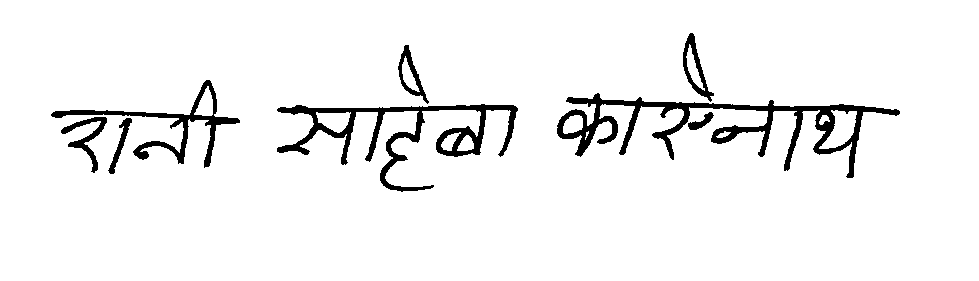 रानी साहेबा का स्नेनाथ